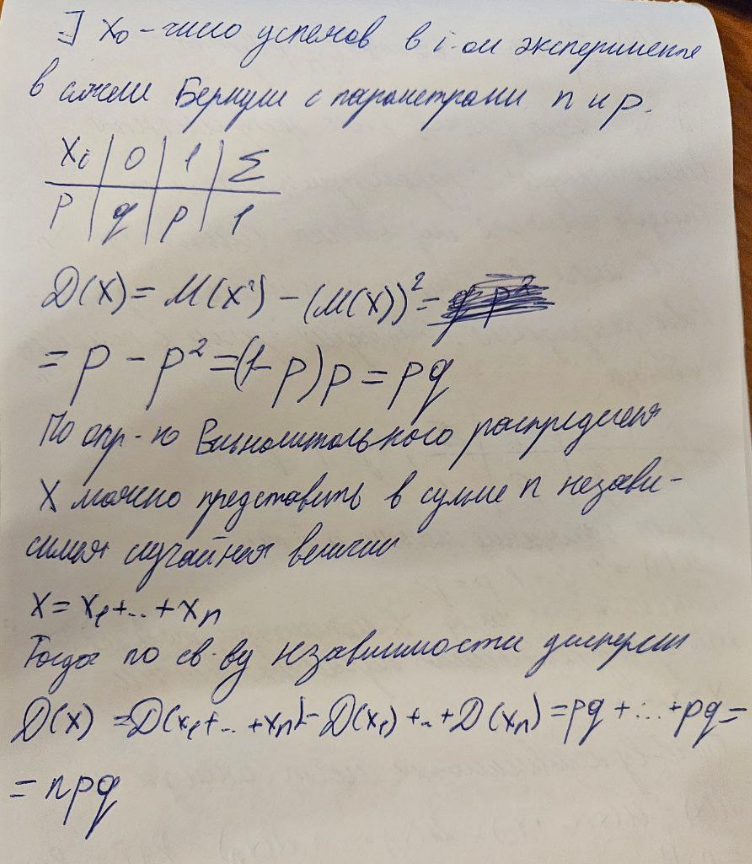 ∃ X₀ - число успехов в i-ом эксперименте
в схеме Бернули с параметрами n и p.
Xi | 0 | 1 | Σ
P | q | p | 1
D(X) = M(X²) - (M(X))² =
= p - p² = (1-p)p = pq
По опр-ю Биномиального распределения
X можно представить в сумме n незави-
симых случайных величин
X = X₁ + ... + Xn
Тогда по св-ву независимости дисперсии
D(X) = D(X₁ + ... + Xn) = D(X₁) + ... + D(Xn) = pq + ... + pq =
= npq